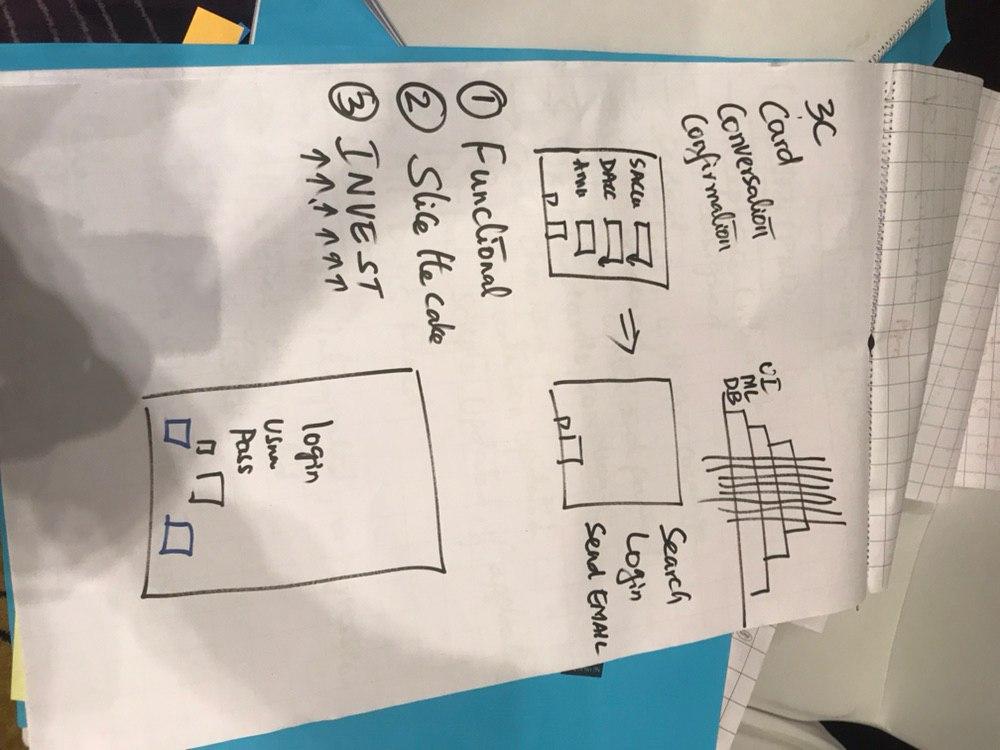 3C
Card
Conversation
Confirmation
UI
ML
DB
SAcc
DAcc
Amn
Search
Login
Send EMAIL
① Functional
② Slice the cake
③ INVEST
↑ ↑ ↑ ↑ ↑ ↑
Login
Usna
Pass